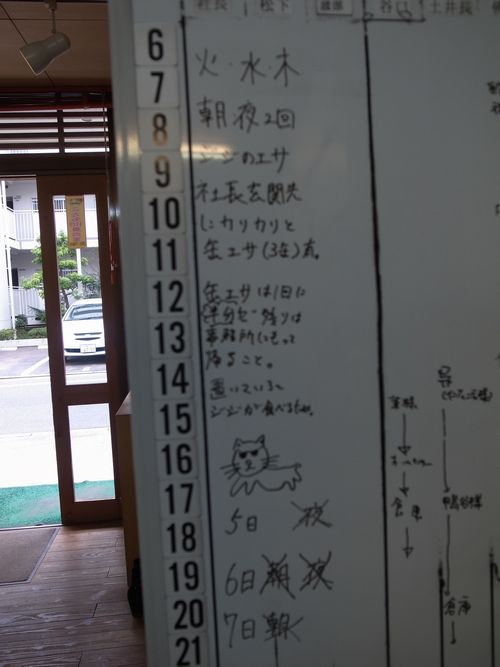 社長
松下
渡部
谷口
土井長
6
7
8
9
10
11
12
13
14
15
16
17
18
19
20
21
火・水・木
朝・夜2回
ジジのエサ
社長玄関先
にカリカリと
缶エサ(3缶)
缶エサは1日に
半分で残りは
事務所にもって
帰ること。
置いていると
ジジが食べるため。
5日 夜
6日 朝 夜
7日 朝
倉庫
鴨谷様
倉庫